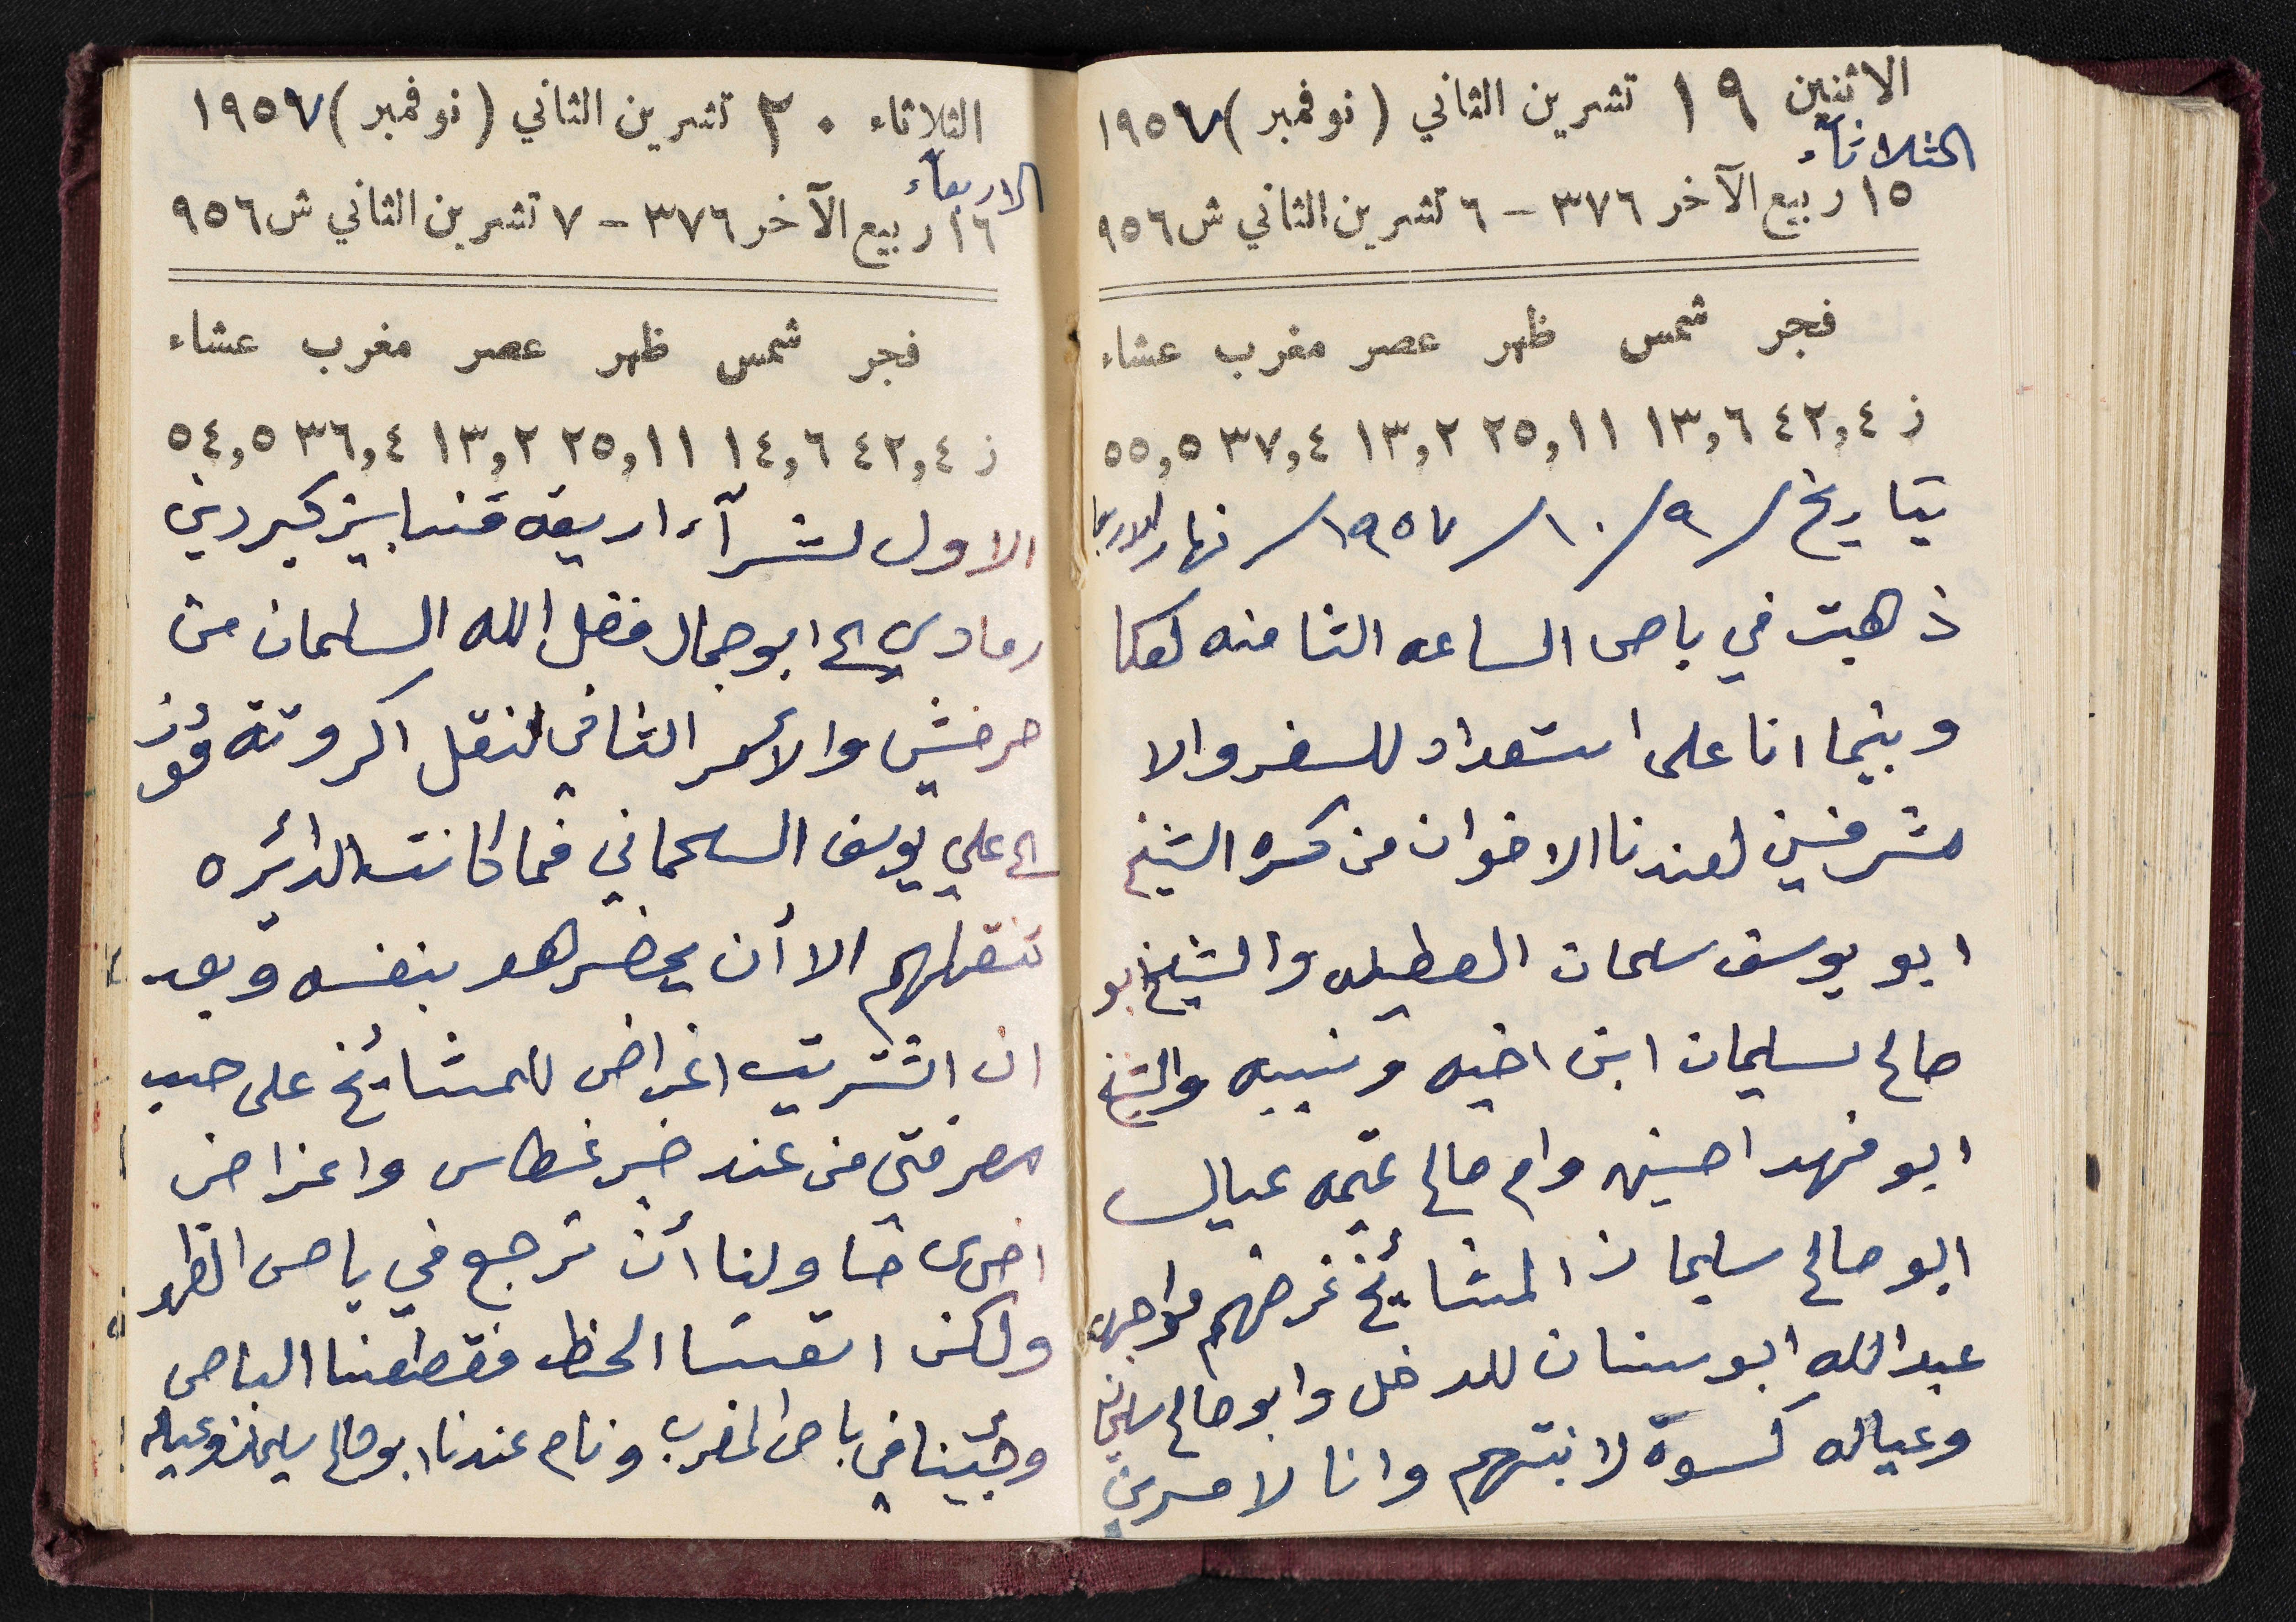 الاثنين ١٩ تشرين الثاني (نوفمبر) ١٩٥٧
الثلاثاء
١٥ ربيع الآخر ٣٧٦ - ٦ تشرين الثاني ش ٩٥٦
فجر شمس ظهر عصر مغرب عشاء
ز ٤٢,٤ ١٣,٦ ٢٥,١١ ١٣,٢ ٣٧,٤ ٥٥,٥
بتاريخ /٩/١٠/١٩٥٧/ نهار الاربعا
ذهبت في باص الساعه الثامنه لعكا
وبينما انا على استعداد للسفر والا
مشرفين لعندنا الاخوان من كسره الشيخ
ابو يوسف سلمان العطيله والشيخ ابو
صالح سليمان ابن اخيه ونسيبه والشيخ
ابو فهد احسين وام صالح عتمه عيال
ابو صالح سليمان المشائخ غرضهم مواجهة
عبدالله ابو سنان للدخل وابو صالح سليمان
وعياله كسوة لابنتهم وانا لامرين
الثلاثاء ٢٠ تشرين الثاني (نوفمبر) ١٩٥٧
الاربعاء
١٦ ربيع الآخر ٣٧٦ - ٧ تشرين الثاني ش ٩٥٦
فجر شمس ظهر عصر مغرب عشاء
ز ٤٢,٤ ١٤,٦ ٢٥,١١ ١٣,٢ ٣٦,٤ ٥٤,٥
الاول لشرآء اربعة قنابيز كبردين
رمادي الى ابو جمال فضل الله السلمان من
حرفيش والامر الثاني لنقل اكروتة فوز
الى علي يوسف السلماني فما كانت الدائره
تنقلهم الا أن يحضر هو بنفسه وبعد
ان اشتريت اغراض للمشائخ على حسب
معرفتي من عند خير غطاس واغراض
اخرى حاولنا أن نرجع في باص الظهر
ولكن اتعسنا الحظ فقطعنا الباص
وجئينا في باص المغرب ونام عندنا ابو صالح سليمان وعياله